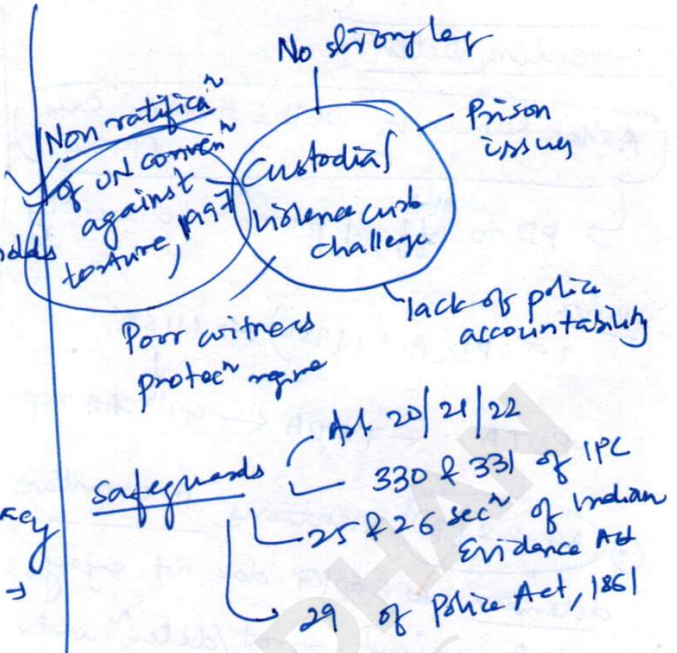 No strong leg
Prison
issues
Non ratificaⁿ
of UN convenⁿ
against
torture, 1997
Custodial
violence curb
challenge
lack of police
accountability
Poor witness
protecⁿ regime
Safeguards
Art 20/21/22
330 & 331 of IPC
25 & 26 secⁿ of Indian
Evidence Act
29 of Police Act, 1861
DHAN